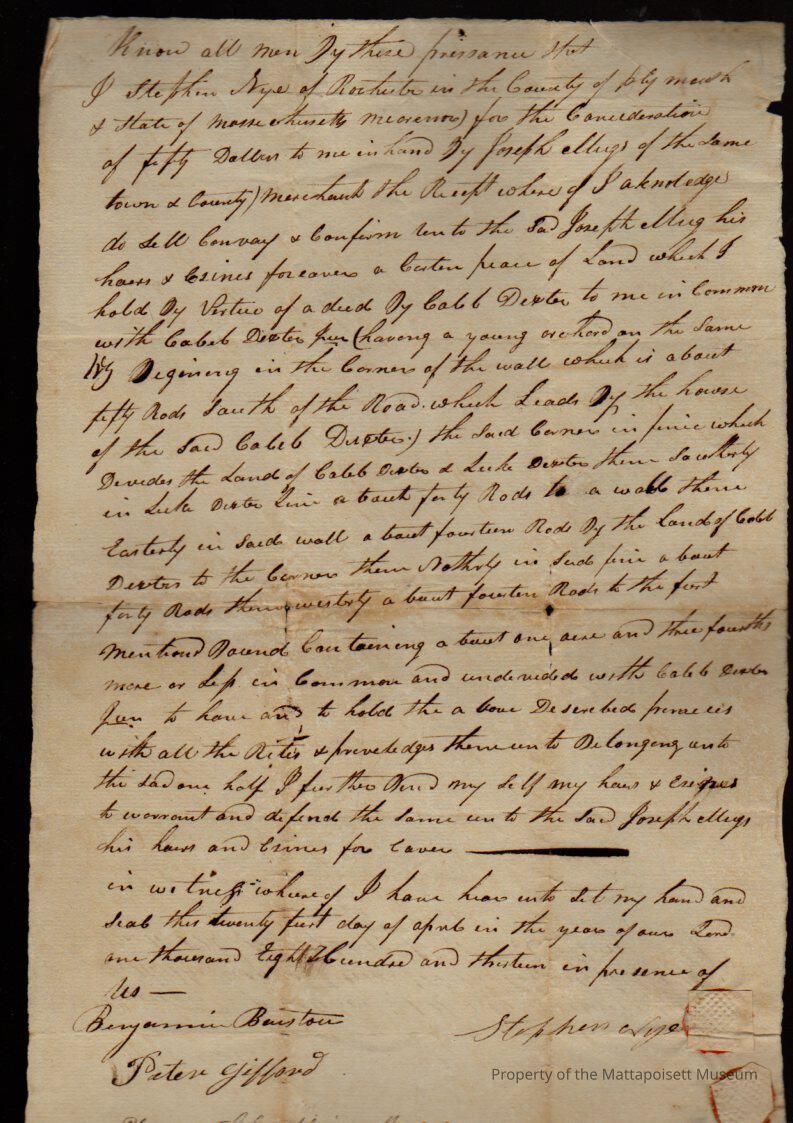 Know all men By these pressance that
I Stephen Nye of Rochester in the County of Plymouth
& State of Massechusetts for the Consideration
of fifty Dollers to me in hand By Joseph Meigs of the Same
town & County) Merchant the Recept where of I aknoledge
do Sell Convay & Confirm un to the Sad Joseph Meigs his
haers & Esines for eaver a Certen peace of Land which I
hold By Virtue of a deed By Caleb Dexter to me in Common
with Caleb Dexter Jun (having a young orchard on the Same
Begining in the Corner of the wall which is about
fifty Rods South of the Road which Leads By the house
of the Said Caleb Dexter) the Said Corner in line which
Devides the Land of Caleb Dexter & Luke Dexter then Southerly
in Luke Dexter Line a bout forty Rods to a wall thenc
Easterly in Said wall a bout fourteen Rods By the Land of Caleb
Dexters to the Corner then Notherly in Sad line a bout
forty Rods thenc westerly a bout fourten Rods to the first
mentiond Bound Containing a bout one acre and three fourths
more or Less in Common and undevided with Caleb Dexter
Jun to have and to hold the a bove Described premeces
with all the Rites & preveledges there un to Belonging unto
the Sad one half I further Bind my Self my haers & Esines
to warrant and defend the Same un to the Sad Joseph Meigs
his haers and Esines for Eaver
in witness whereof I have hear unto Set my hand and
Seal this twenty first day of april in the year of our Lord
one thousand Eight Hundred and thirteen in presence of
us —
Benjamin Barstow
Stephen Nye
Peter Gifford
Property of the Mattapoisett Museum